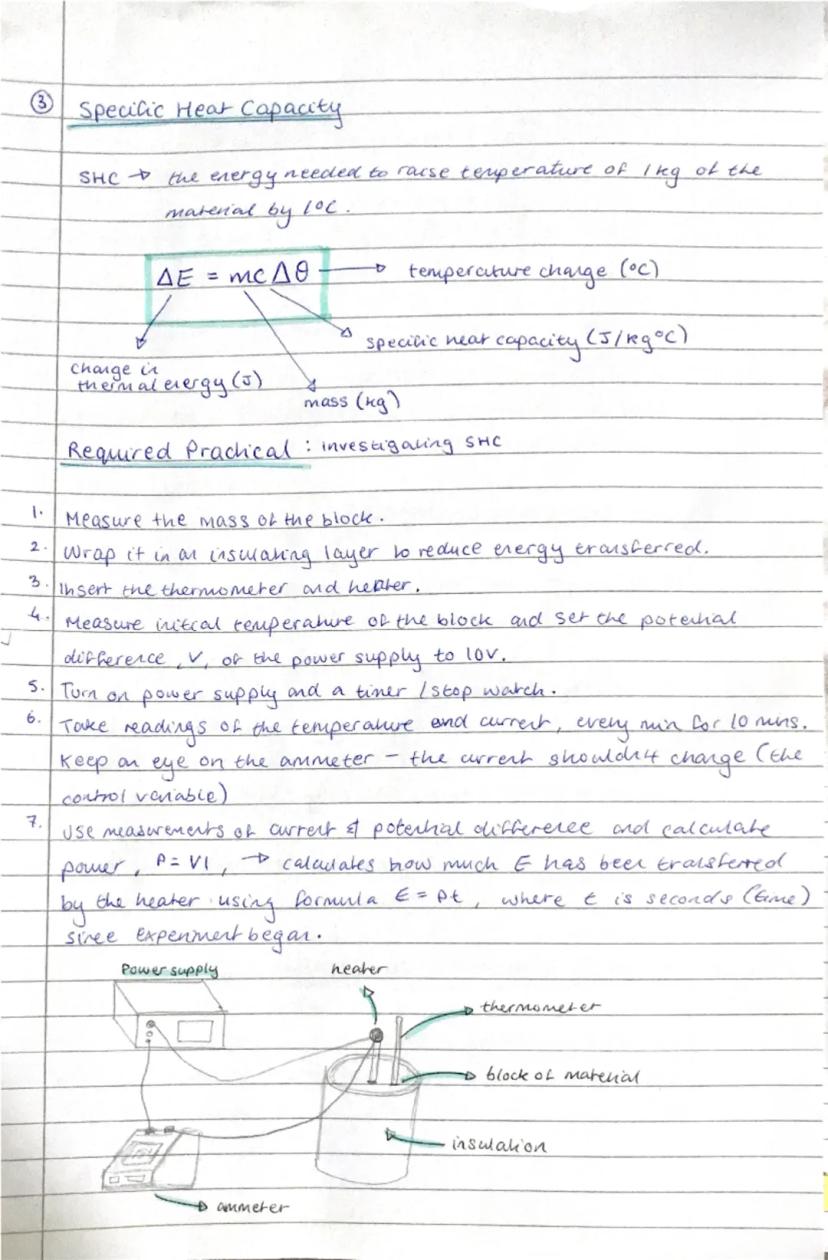 ③ Specific Heat Capacity
SHC → the energy needed to raise temperature of 1kg of the
material by 1°C.
ΔE = mcΔθ → temperature change (°C)
specific heat capacity (J/kg°C)
change in
thermal energy (J)
mass (kg)
Required Practical : investigating SHC
1. Measure the mass of the block.
2. Wrap it in an insulating layer to reduce energy transferred.
3. Insert the thermometer and heater.
4. Measure initial temperature of the block and set the potential
difference, V, of the power supply to 10V.
5. Turn on power supply and a timer / stop watch.
6. Take readings of the temperature and current, every min for 10 mins.
Keep an eye on the ammeter – the current shouldn't change (the
control variable)
7. Use measurements of current & potential difference and calculate
power, P = VI, → calculates how much E has been transferred
by the heater using formula E = Pt, where t is seconds (time)
since experiment began.
Power supply
heater
thermometer
block of material
insulation
ammeter